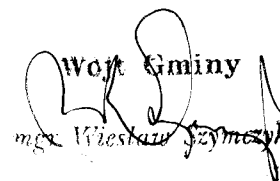 Wojt Gminy
mgr Wiesław Szymczyk